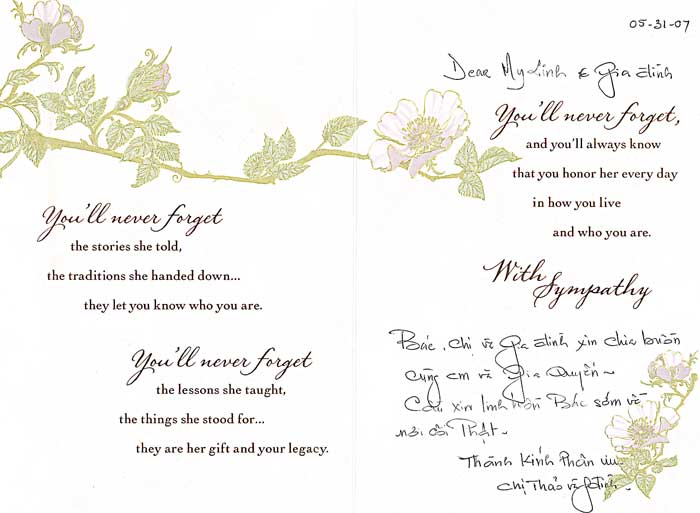 You'll never forget
the stories she told,
the traditions she handed down...
they let you know who you are.
You'll never forget
the lessons she taught,
the things she stood for...
they are her gift and your legacy.
05-31-07
Dear My Linh & Gia đình
You'll never forget,
and you'll always know
that you honor her every day
in how you live
and who you are.
With
Sympathy
Bác, Chị và Gia đình xin chia buồn
cùng em và Gia Quyến ~
Cầu xin linh hồn Bác sớm về
nơi cõi Phật.
Thành Kính Phân ưu
Chị Thảo và gđình